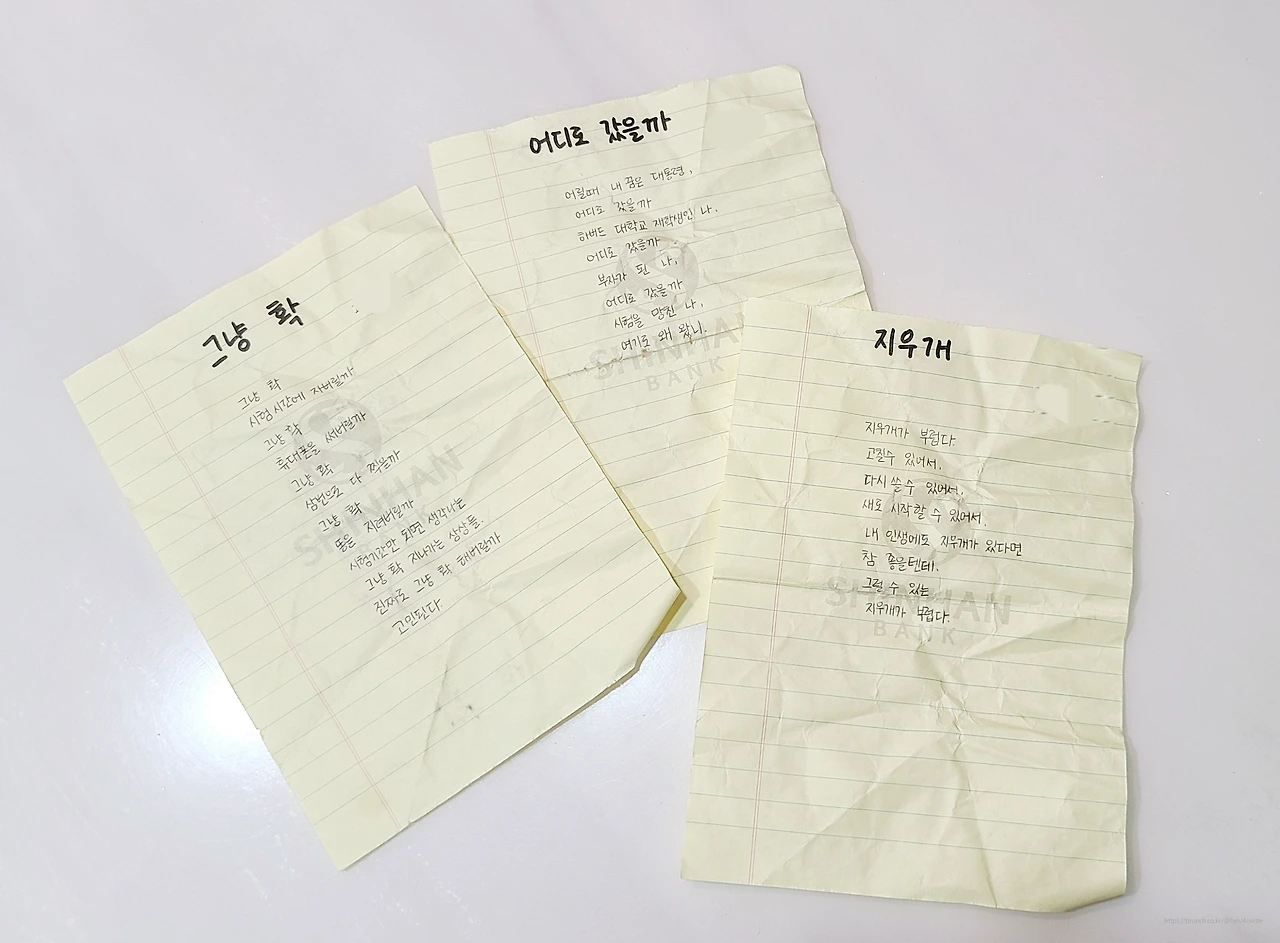 그냥 확
그냥 확
시험시간에 자버릴까
그냥 확
휴대폰을 써버릴까
그냥 확
삼번으로 다 찍을까
그냥 확
똥을 지려버릴까
시험기간만 되면 생각나는
그냥 확 지나가는 상상들.
진짜로 그냥 확 해버릴까
고민된다.
SHINHAN
어디로 갔을까
어릴때 내 꿈은 대통령,
어디로 갔을까
하버드 대학교 재학생인 나.
어디로 갔을까
부자가 된 나,
어디로 갔을까
시험을 망친 나,
여기로 왜 왔니.
SHINHAN
BANK
지우개
지우개가 부럽다.
고칠수 있어서.
다시 쓸 수 있어서.
새로 시작할 수 있어서.
내 인생에도 지우개가 있다면
참 좋을텐데.
그럴 수 있는
지우개가 부럽다.
SHINHAN
BANK